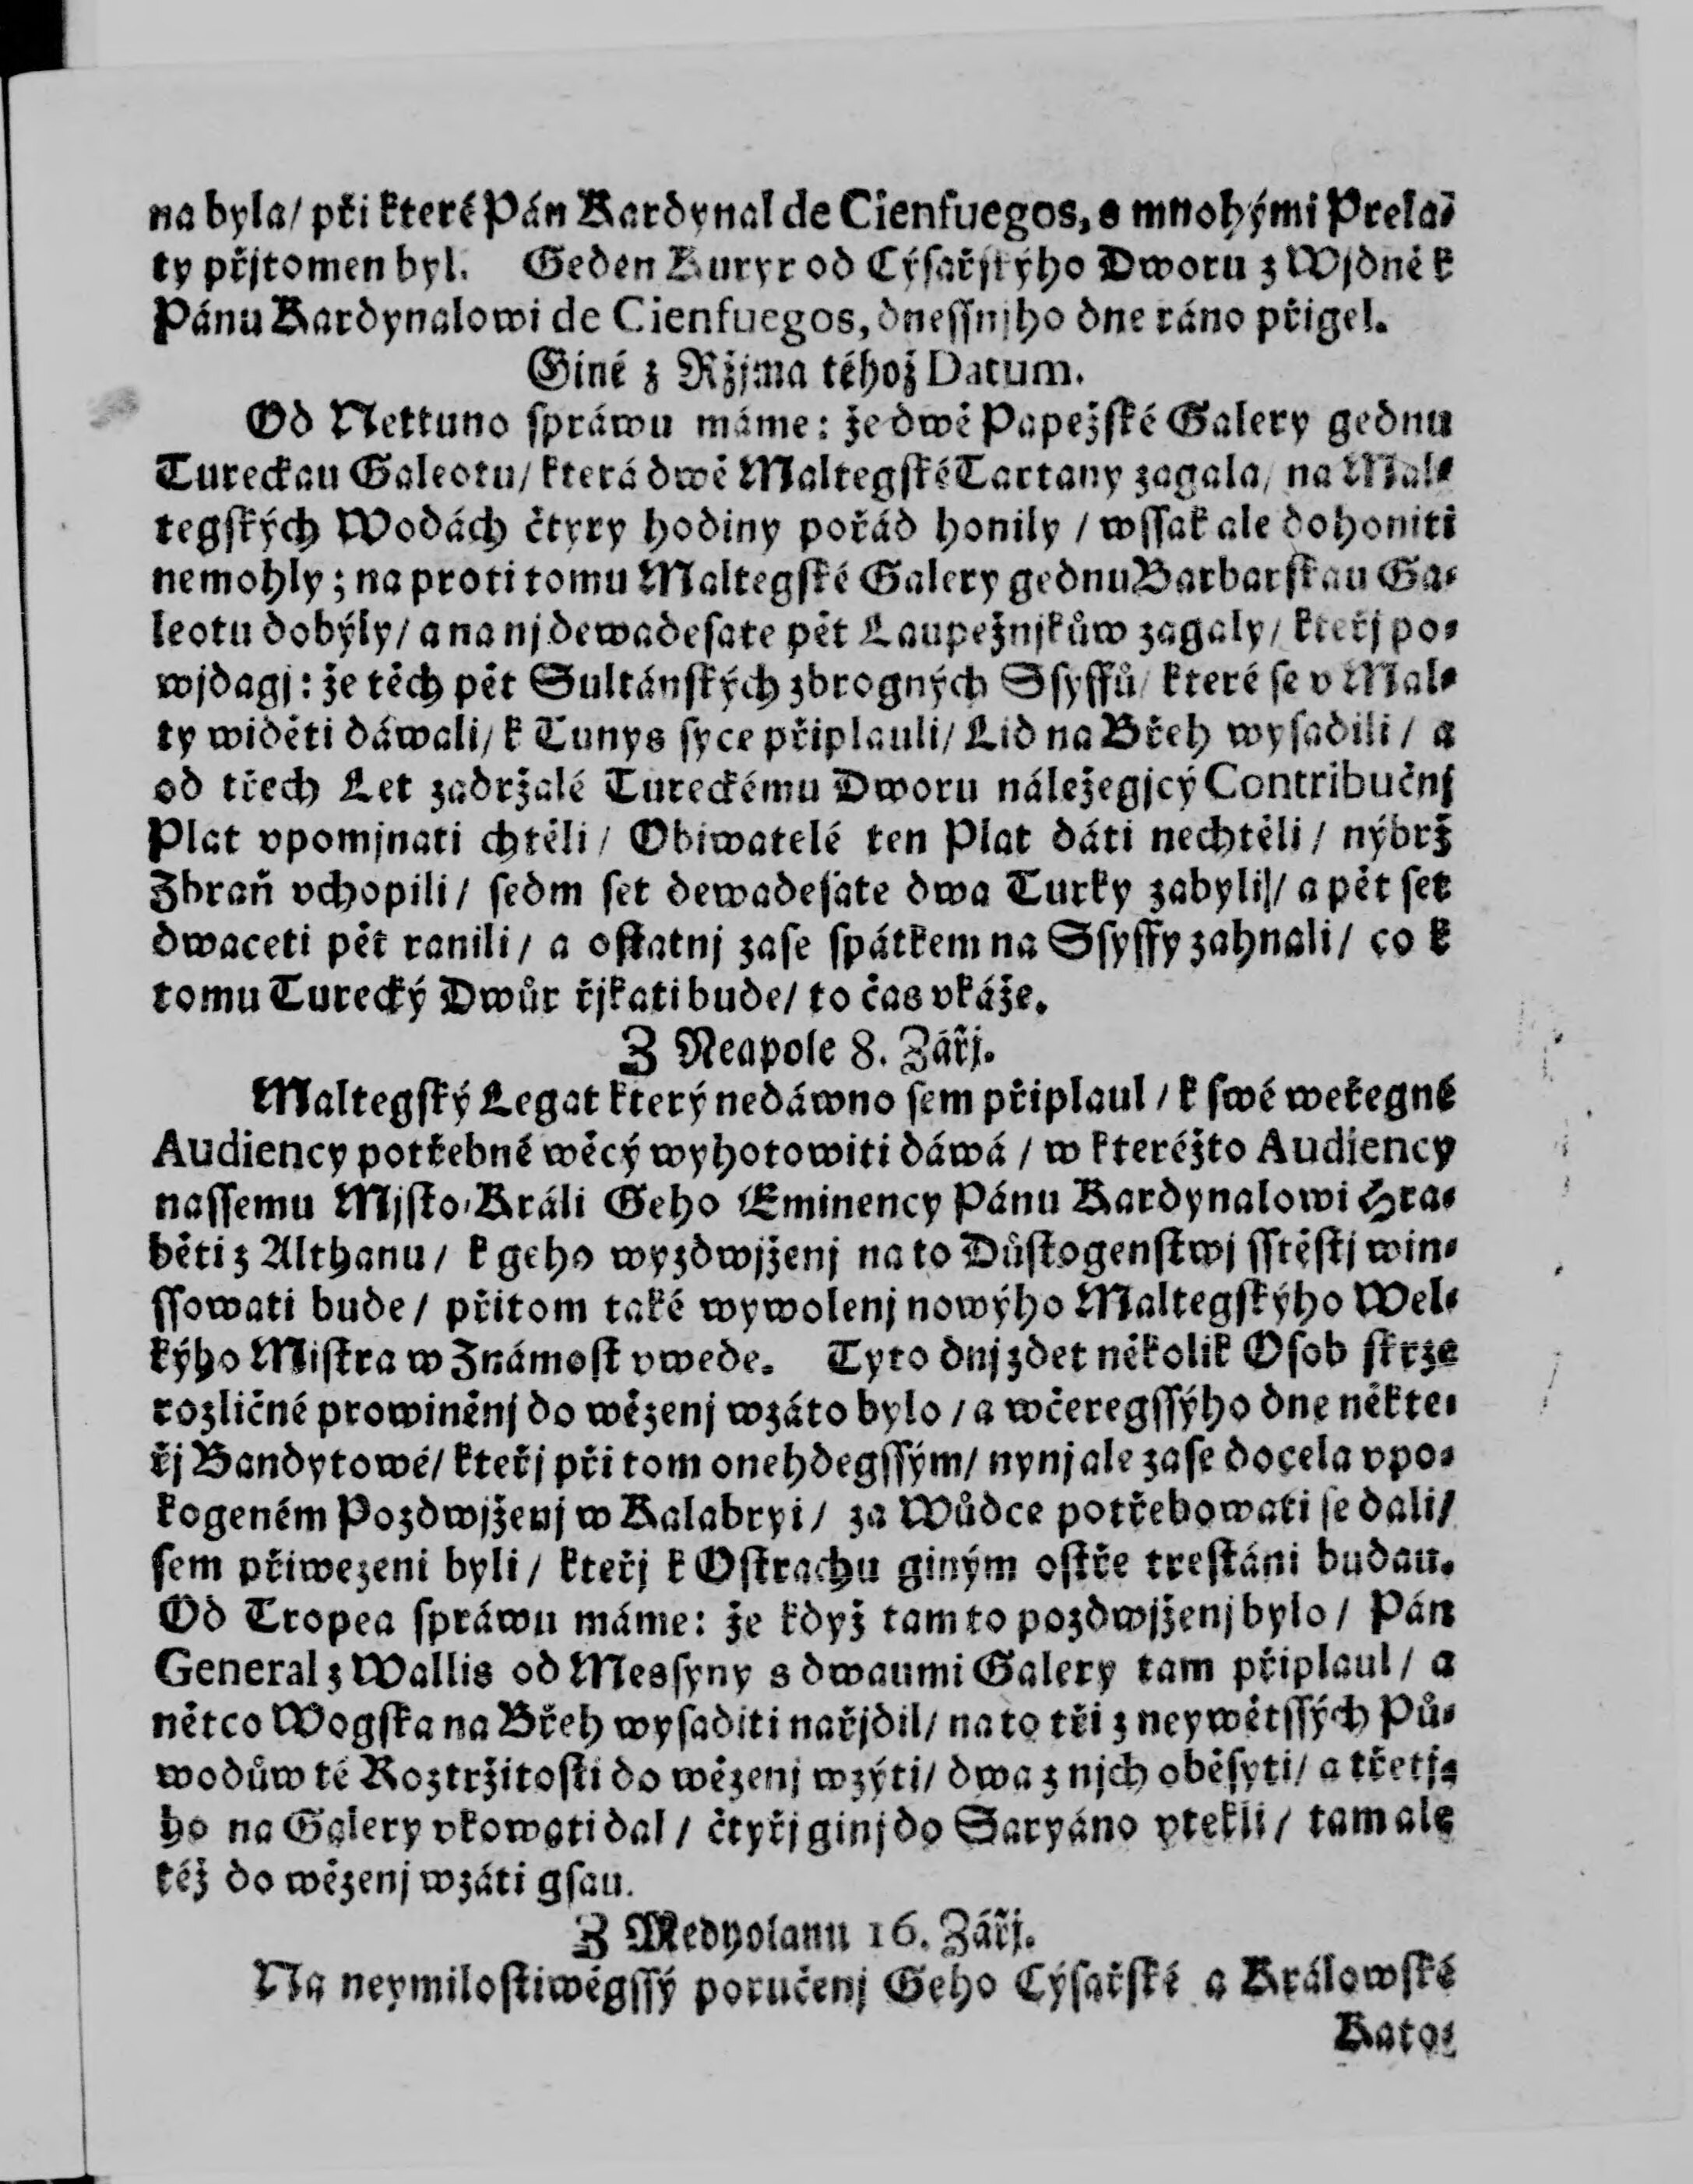 na byla/ při které Pán Kardynal de Cienfuegos, s mnohými Prela-
ty přjtomen byl. Geden Kuryr od Cýſařſkýho Dworu z Wjdně k
Pánu Kardynalowi de Cienfuegos, dneſſnjho dne ráno přigel.
Giné z Ržjma téhož Datum.
Od Nettuno ſpráwu máme: že dwě Papežſké Galery gednu
Tureckau Galeotu/ která dwě Maltegſké Tartany zagala/ na Mal-
tegſkých Wodách čtyry hodiny pořád honily / wſſak ale dohoniti
nemohly; na proti tomu Maltegſké Galery gednu Barbarſkau Ga-
leotu dobýly/ a na nj dewadeſate pět Laupežnjkůw zagaly/ kteřj po-
wjdagj: že těch pět Sultánſkých zbrogných Sſyffů/ které ſe v Mal-
ty widěti dáwali/ k Tunys ſyce připlauli/ Lid na Břeh wyſadili / a
od třech Let zadržalé Tureckému Dworu náležegjcý Contribučnj
Plat vpomjnati chtěli / Obiwatelé ten Plat dáti nechtěli / nýbrž
Zbraň vchopili / ſedm ſet dewadeſate dwa Turky zabyli/ a pět ſet
dwaceti pět ranili / a oſtatnj zaſe ſpátkem na Sſyffy zahnali / co k
tomu Turecký Dwůr řjkati bude/ to čas vkáže.
Z Neapole 8. Zářj.
Maltegſký Legat který nedáwno ſem připlaul / k ſwé weřegné
Audiency potřebné wěcý wyhotowiti dáwá / w kteréžto Audiency
naſſemu Mjſto-Králi Geho Eminency Pánu Kardynalowi Hra-
běti z Althanu / k geho wyzdwjženj na to Důſtogenſtwj ſſtěſtj win-
ſſowati bude / přitom také wywolenj nowýho Maltegſkýho Wel-
kýho Miſtra w Známoſt vwede. Tyto dnj zdet několik Oſob ſkrze
rozličné prowiněnj do wězenj wzáto bylo / a wčeregſſýho dne někte-
řj Bandytowé/ kteřj při tom onehdegſſým/ nynj ale zaſe docela vpo-
kogeném Pozdwjženj w Kalabryi / za Wůdce potřebowati ſe dali/
ſem přiwezeni byli / kteřj k Oſtrachu giným oſtře treſtáni budau.
Od Tropea ſpráwu máme: že když tam to pozdwjženj bylo / Pán
General z Wallis od Mesſyny s dwaumi Galery tam připlaul / a
nětco Wogſka na Břeh wyſaditi nařjdil/ na to tři z neywětſſých Pů-
wodůw té Roztržitoſti do wězenj wzýti/ dwa z njch oběſyti/ a třetj-
ho na Galery vkowati dal / čtyřj ginj do Saryáno vtekli / tam ale
též do wězenj wzáti gſau.
Z Medyolanu 16. Zářj.
Na neymiloſtiwěgſſý poručenj Geho Cýſařſké a Králowſké
Kato-